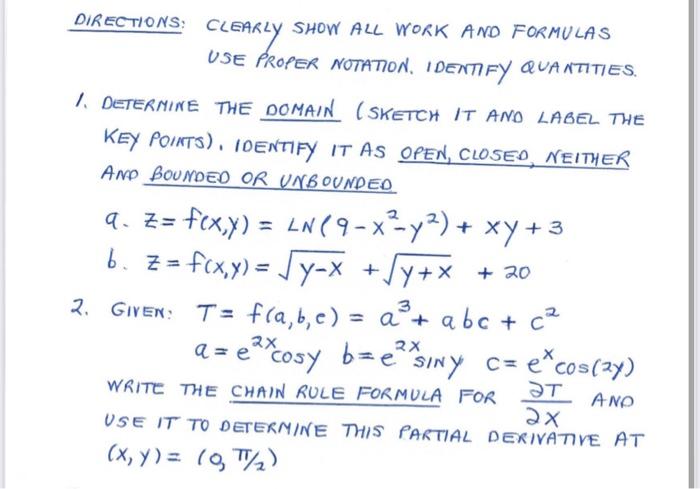 DIRECTIONS: CLEARLY SHOW ALL WORK AND FORMULAS
USE PROPER NOTATION. IDENTIFY QUANTITIES.
1. DETERMINE THE DOMAIN (SKETCH IT AND LABEL THE
KEY POINTS). IDENTIFY IT AS OPEN, CLOSED, NEITHER
AND BOUNDED OR UNBOUNDED
a. z = f(x,y) = LN(9-x²-y²) + xy + 3
b. z = f(x,y) = √(y-x) + √(y+x) + 20
2. GIVEN: T = f(a,b,c) = a³ + abc + c²
a = e²ˣcosy b = e²ˣsiny c = eˣcos(2y)
WRITE THE CHAIN RULE FORMULA FOR ∂T/∂x AND
USE IT TO DETERMINE THIS PARTIAL DERIVATIVE AT
(x,y) = (0, π/2)